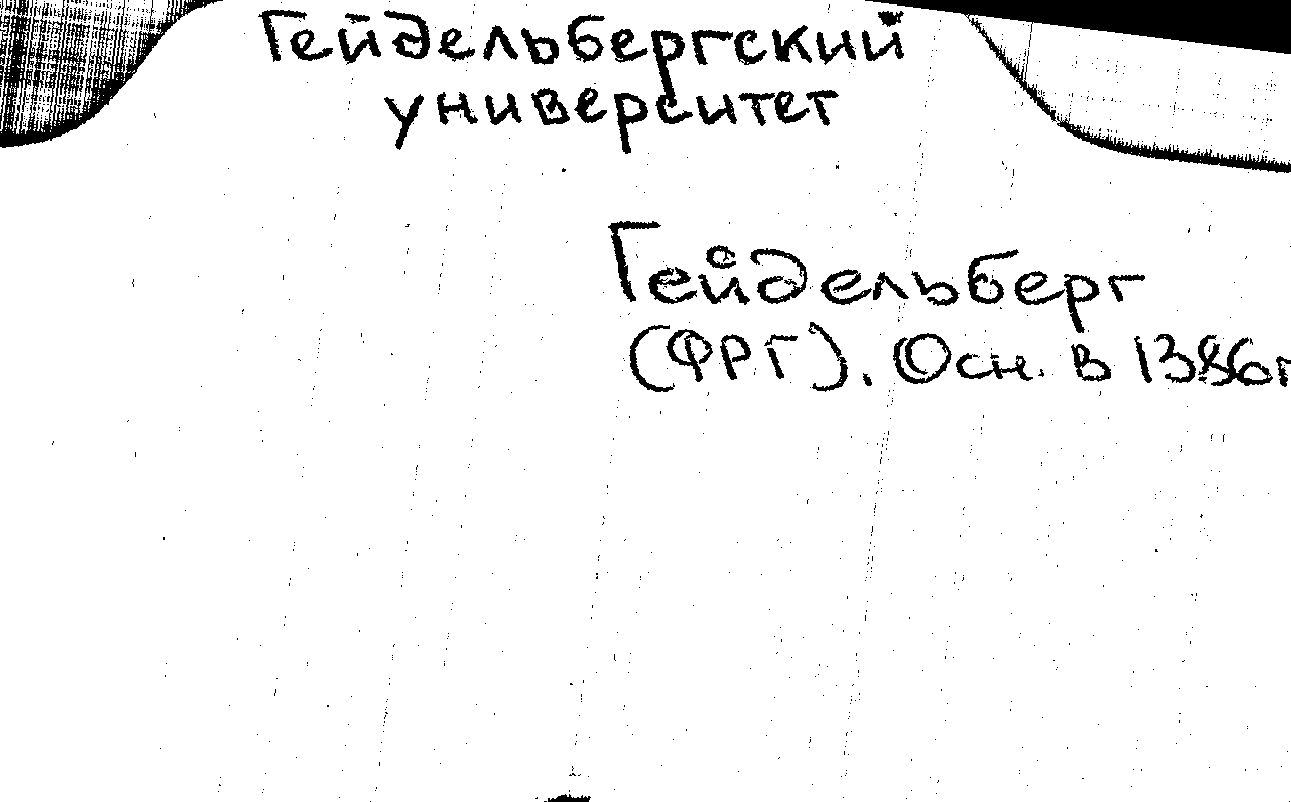 Гейдельбергский
университет
Гейдельберг
(ФРГ). Осн. в 1386г